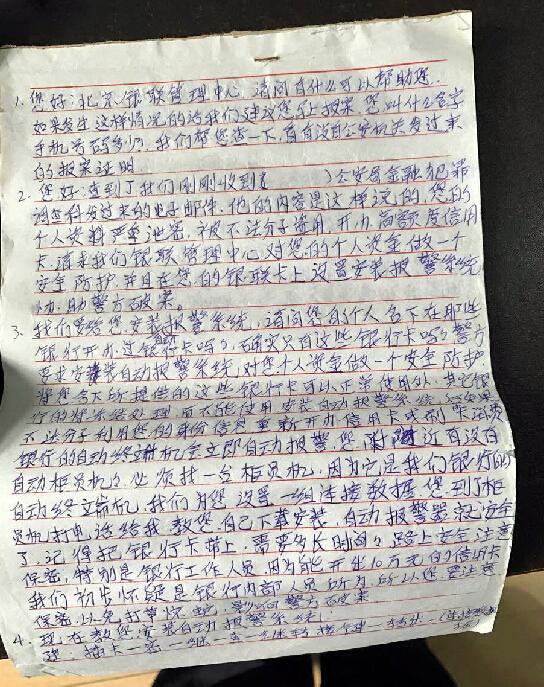 1. 您好:北京银联管理中心,请问有什么可以帮助您.
如果发生这样情况的话我们建议您先报案.您叫什么名字
手机号码多少,我们帮您查一下,看有没有公安机关发过来
的报案证明.
2. 您好:查到了我们刚刚收到( )公安局金融犯罪
调查科发过来的电子邮件.他的内容是这样说的.您的
个人资料严重泄密.被不法分子盗用.开办高额度信用
卡.请求我们银联管理中心对您的个人资金做一个
安全防护并且在您的银联卡上设置安装报警系统
协助警方破案。
3. 我们要给您安装报警系统,请问您的个人名下在那些
银行开办过银行卡吗?确实只有这些银行卡吗?警方
要求安装自动报警系统,对您个人资金做一个安全防护
将您名下所提供的这些银行卡可以正常使用外.其它银
行的将冻结处理而不能使用.安装自动报警系统
不法分子利用您的身份信息重新开办信用卡或到
银行的自动终端机会立即自动报警您附近有没有
自动柜员机?必须找一台柜员机.因为它是我们银行的
自动终端机.我们为您设置一组连接数据您到了柜
员机打电话给我教您自己下载安装.自动报警器就
了.记得把银行卡带上.需要多长时间?路上安全注意
保密.特别是银行工作人员.因为能开出10万元的信用卡
我们初步怀疑是银行内部人员所为.所以您要注意
保密.以免打草惊蛇.影响警方破案
4. 现在教您安装自动报警系统.
插卡一密一